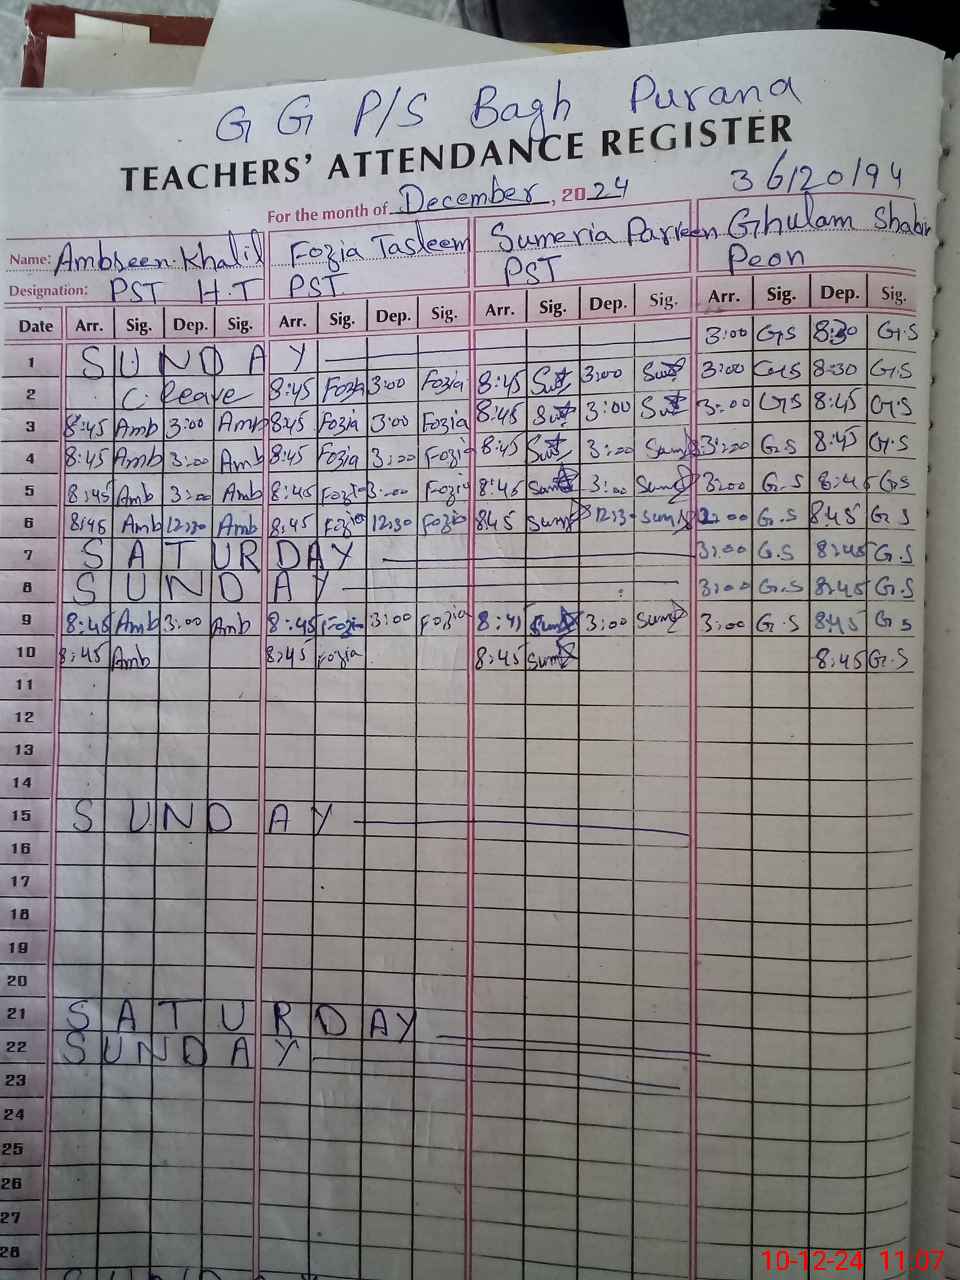 G G P/S Bagh Purana
TEACHERS' ATTENDANCE REGISTER
For the month of December, 2024 36120194
Name: Ambreen Khalil Fozia Tasleem Sumeria Parveen Ghulam Shabir
Designation: PST H.T PST PST Peon
Date Arr. Sig. Dep. Sig. Arr. Sig. Dep. Sig. Arr. Sig. Dep. Sig. Arr. Sig. Dep. Sig.
1 SUNDAY 3:00 G.S 8:30 G.S
2 C. leave 8:45 Fozia 3:00 Fozia 8:45 3:00 3:00 G.S 8:30 G.S
3 8:45 Amb 3:00 Amb 8:45 Fozia 3:00 Fozia 8:45 3:00 3:00 G.S 8:45 G.S
4 8:45 Amb 3:00 Amb 8:45 Fozia 3:00 Fozia 8:45 3:00 Sum 3:00 G.S 8:45 G.S
5 8:45 Amb 3:00 Amb 8:45 Fozia 3:00 Fozia 8:45 Sum 3:00 Sum 3:00 G.S 8:45 G.S
6 8:45 Amb 12:30 Amb 8:45 Fozia 12:30 Fozia 8:45 Sum 12:30 Sum G.S 8:45 G.S
7 SATURDAY 3:00 G.S 8:45 G.S
8 SUNDAY 3:00 G.S 8:45 G.S
9 8:45 Amb 3:00 Amb 8:45 Fozia 3:00 Fozia 8:45 Sum 3:00 Sum 3:00 G.S 8:45 G.S
10 8:45 Amb 8:45 Fozia 8:45 Sum 8:45 G.S
11
12
13
14
15 SUNDAY
16
17
18
19
20
21 SATURDAY
22 SUNDAY
23
24
25
26
27
28
10-12-24 11:07